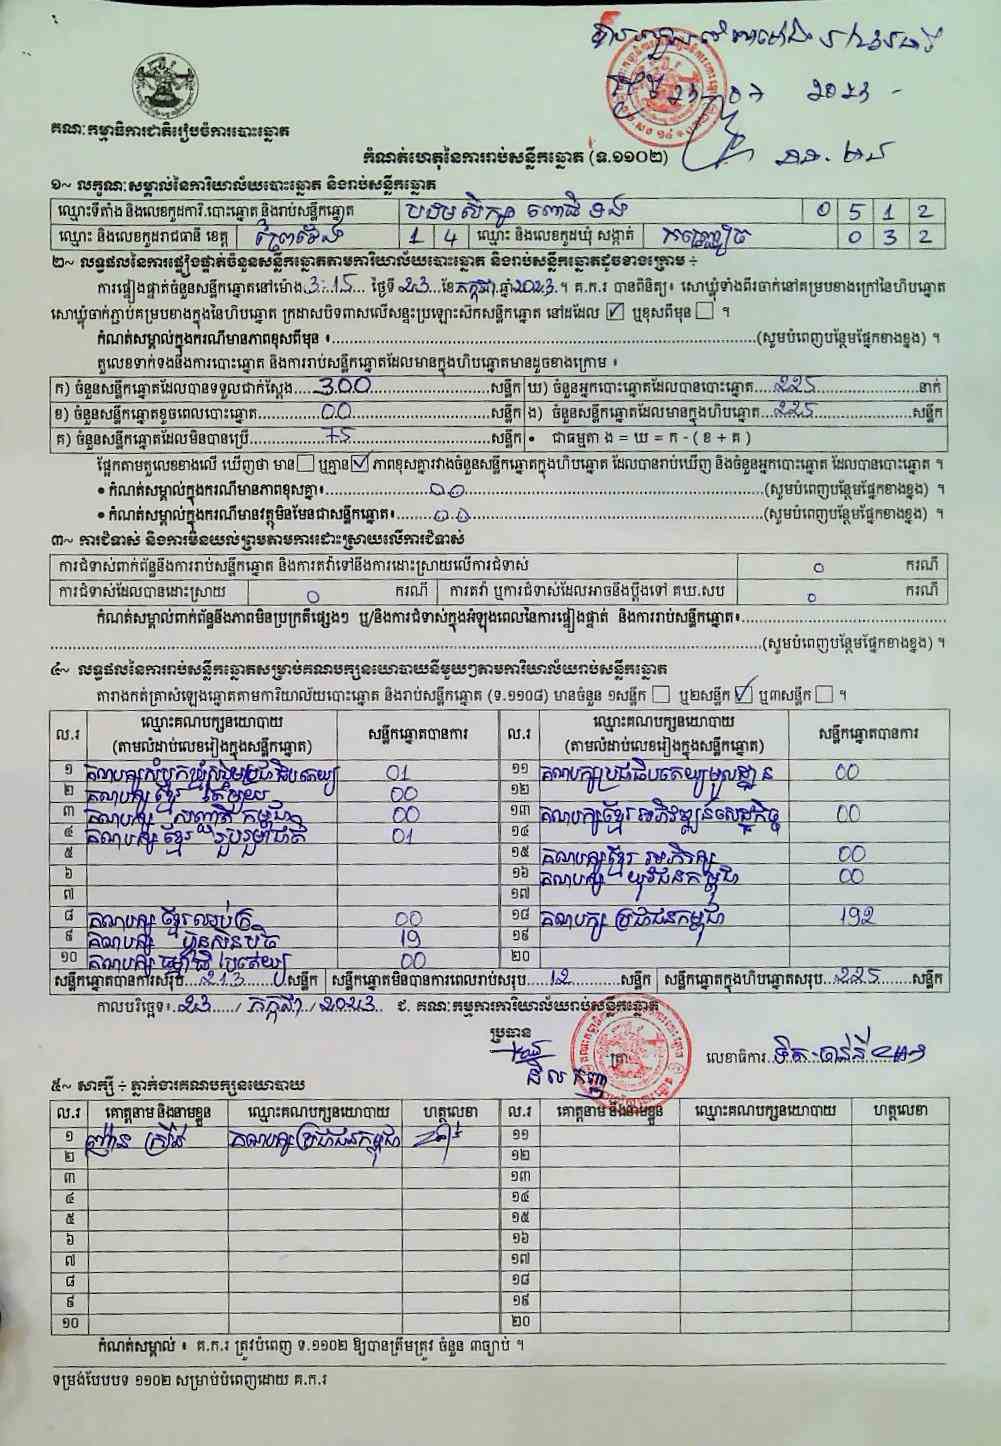 ២៣ ០៧ ២០២៣
គណៈកម្មាធិការជាតិរៀបចំការបោះឆ្នោត
កំណត់ហេតុនៃការរាប់សន្លឹកឆ្នោត (ទ.១១០២)
១~ លក្ខណៈសម្គាល់នៃការិយាល័យបោះឆ្នោត និងរាប់សន្លឹកឆ្នោត
ឈ្មោះទីតាំង និងលេខកូដការិ.បោះឆ្នោត និងរាប់សន្លឹកឆ្នោត បឋមសិក្សា ពោធិ៍ទង 0 5 1 2
ឈ្មោះ និងលេខកូដរាជធានី ខេត្ត ព្រៃវែង 1 4 ឈ្មោះ និងលេខកូដឃុំ សង្កាត់ 0 3 2
២~ លទ្ធផលនៃការផ្ទៀងផ្ទាត់ចំនួនសន្លឹកឆ្នោតតាមការិយាល័យបោះឆ្នោត និងរាប់សន្លឹកឆ្នោតដូចខាងក្រោម ÷
ការផ្ទៀងផ្ទាត់ចំនួនសន្លឹកឆ្នោតនៅម៉ោង 3:15 ថ្ងៃទី 23 ខែ កក្កដា ឆ្នាំ 2023 ។ គ.ក.រ បានពិនិត្យ៖ សោឃ្លុំទាំងពីរចាក់នៅគម្របខាងក្រៅនៃហិបឆ្នោត
សោឃ្លុំចាក់ភ្ជាប់គម្របខាងក្នុងនៃហិបឆ្នោត ក្រដាសបិទពាសលើសន្ទះប្រឡោះស៊កសន្លឹកឆ្នោត នៅដដែល ☑ ឬខុសពីមុន ☐ ។
កំណត់សម្គាល់ក្នុងករណីមានភាពខុសពីមុន ៖ (សូមបំពេញបន្ថែមផ្នែកខាងខ្នង) ។
តួលេខទាក់ទងនឹងការបោះឆ្នោត និងការរាប់សន្លឹកឆ្នោតដែលមានក្នុងហិបឆ្នោតមានដូចខាងក្រោម ៖
ក) ចំនួនសន្លឹកឆ្នោតដែលបានទទួលជាក់ស្តែង 300 សន្លឹក ឃ) ចំនួនអ្នកបោះឆ្នោតដែលបានបោះឆ្នោត 225 នាក់
ខ) ចំនួនសន្លឹកឆ្នោតខូចពេលបោះឆ្នោត 00 សន្លឹក ង) ចំនួនសន្លឹកឆ្នោតដែលមានក្នុងហិបឆ្នោត 225 សន្លឹក
គ) ចំនួនសន្លឹកឆ្នោតដែលមិនបានប្រើ 75 សន្លឹក • ជាធម្មតា ង = ឃ = ក - ( ខ + គ )
ផ្អែកតាមតួលេខខាងលើ ឃើញថា មាន ☐ ឬគ្មាន ☑ ភាពខុសគ្នារវាងចំនួនសន្លឹកឆ្នោតក្នុងហិបឆ្នោត ដែលបានរាប់ឃើញ និងចំនួនអ្នកបោះឆ្នោត ដែលបានបោះឆ្នោត ។
• កំណត់សម្គាល់ក្នុងករណីមានភាពខុសគ្នា៖ 00 (សូមបំពេញបន្ថែមផ្នែកខាងខ្នង) ។
• កំណត់សម្គាល់ក្នុងករណីមានវត្ថុមិនមែនជាសន្លឹកឆ្នោត៖ 00 (សូមបំពេញបន្ថែមផ្នែកខាងខ្នង) ។
៣~ ការជំទាស់ និងការមិនយល់ព្រមតាមការដោះស្រាយលើការជំទាស់
ការជំទាស់ពាក់ព័ន្ធនឹងការរាប់សន្លឹកឆ្នោត និងការតវ៉ាទៅនឹងការដោះស្រាយលើការជំទាស់ 0 ករណី
ការជំទាស់ដែលបានដោះស្រាយ 0 ករណី ការតវ៉ា ឬការជំទាស់ដែលអាចនឹងប្តឹងទៅ គឃ.សប 0 ករណី
កំណត់សម្គាល់ពាក់ព័ន្ធនឹងភាពមិនប្រក្រតីផ្សេងៗ ឬ/និងការជំទាស់ក្នុងអំឡុងពេលនៃការផ្ទៀងផ្ទាត់ និងការរាប់សន្លឹកឆ្នោត៖
(សូមបំពេញបន្ថែមផ្នែកខាងខ្នង) ។
៤~ លទ្ធផលនៃការរាប់សន្លឹកឆ្នោតសម្រាប់គណបក្សនយោបាយនីមួយៗតាមការិយាល័យរាប់សន្លឹកឆ្នោត
តារាងកត់ត្រាសំឡេងឆ្នោតតាមការិយាល័យបោះឆ្នោត និងរាប់សន្លឹកឆ្នោត (ទ.១១០៨) មានចំនួន ១សន្លឹក ☐ ឬ២សន្លឹក ☑ ឬ៣សន្លឹក ☐ ។
ល.រ ឈ្មោះគណបក្សនយោបាយ (តាមលំដាប់លេខរៀងក្នុងសន្លឹកឆ្នោត) សន្លឹកឆ្នោតបានការ ល.រ ឈ្មោះគណបក្សនយោបាយ (តាមលំដាប់លេខរៀងក្នុងសន្លឹកឆ្នោត) សន្លឹកឆ្នោតបានការ
១ គណបក្សសំបុកឃ្មុំសង្គមប្រជាធិបតេយ្យ 01 ១១ គណបក្សប្រជាធិបតេយ្យមូលដ្ឋាន 00
២ គណបក្ស ខ្មែរ តែមួយ 00 ១២
៣ គណបក្ស សញ្ជាតិកម្ពុជា 00 ១៣ គណបក្សខ្មែរ អភិវឌ្ឍន៍សេដ្ឋកិច្ច 00
៤ គណបក្ស ខ្មែរ រួបរួមជាតិ 01 ១៤
៥ ១៥ គណបក្សខ្មែរ អភិរក្ស 00
៦ ១៦ គណបក្ស យុវជនកម្ពុជា 00
៧ ១៧
៨ គណបក្ស ខ្មែរឈប់ក្រ 00 ១៨ គណបក្ស ប្រជាជនកម្ពុជា 192
៩ គណបក្ស ហ្វ៊ុនស៊ិនប៉ិច 19 ១៩
១០ គណបក្ស ធម្មាធិបតេយ្យ 00 ២០
សន្លឹកឆ្នោតបានការសរុប 213 សន្លឹក សន្លឹកឆ្នោតមិនបានការពេលរាប់សរុប 12 សន្លឹក សន្លឹកឆ្នោតក្នុងហិបឆ្នោតសរុប 225 សន្លឹក
កាលបរិច្ឆេទ៖ 23 / កក្កដា / 2023 ជ. គណៈកម្មការការិយាល័យរាប់សន្លឹកឆ្នោត
ប្រធាន
ត្រា លេខាធិការ
៥~ សាក្សី ÷ ភ្នាក់ងារគណបក្សនយោបាយ
ល.រ គោត្តនាម និងនាមខ្លួន ឈ្មោះគណបក្សនយោបាយ ហត្ថលេខា ល.រ គោត្តនាម និងនាមខ្លួន ឈ្មោះគណបក្សនយោបាយ ហត្ថលេខា
១ គណបក្សប្រជាជនកម្ពុជា ១១
២ ១២
៣ ១៣
៤ ១៤
៥ ១៥
៦ ១៦
៧ ១៧
៨ ១៨
៩ ១៩
១០ ២០
កំណត់សម្គាល់ ៖ គ.ក.រ ត្រូវបំពេញ ទ.១១០២ ឱ្យបានត្រឹមត្រូវ ចំនួន ៣ច្បាប់ ។
ទម្រង់បែបបទ ១១០២ សម្រាប់បំពេញដោយ គ.ក.រ